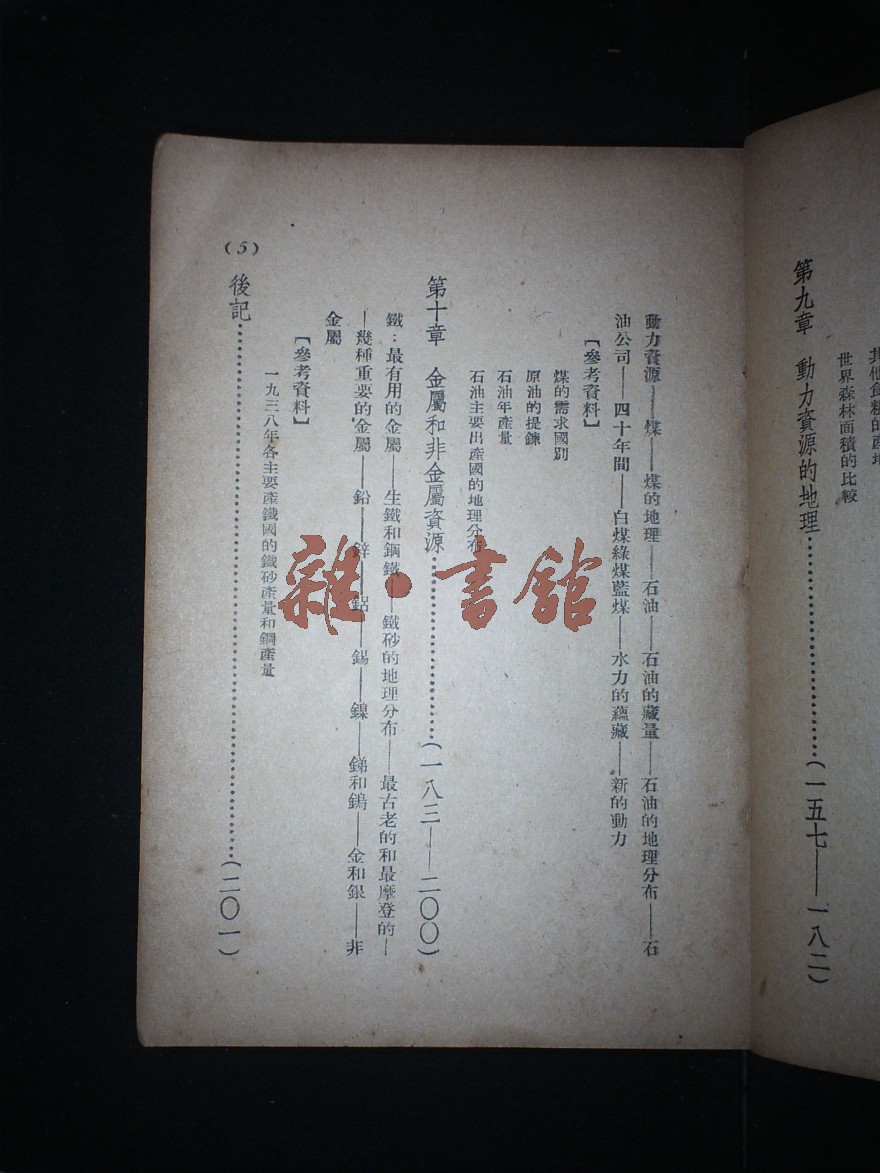 世界森林面積的比較
第九章　動力資源的地理⋯⋯⋯⋯⋯⋯(一五七——一八二)
動力資源——煤——煤的地理——石油——石油的藏量——石油的地理分布——石
油公司——四十年間——白煤綠煤藍煤——水力的蘊藏——新的動力
【參考資料】
煤的需求國別
原油的提鍊
石油年產量
石油主要出產國的地理分布
第十章　金屬和非金屬資源⋯⋯⋯⋯⋯⋯(一八三——二〇〇)
鐵：最有用的金屬——生鐵和鋼鐵——鐵砂的地理分布——最古老的和最摩登的—
—幾種重要的金屬——鉛——鋅——鋁——錫——鎳——銻和鎢——金和銀——非
金屬
【參考資料】
一九三八年各主要產鐵國的鐵砂產量和鋼產量
後記⋯⋯⋯⋯⋯⋯(二〇一)
(5)
雜·書館